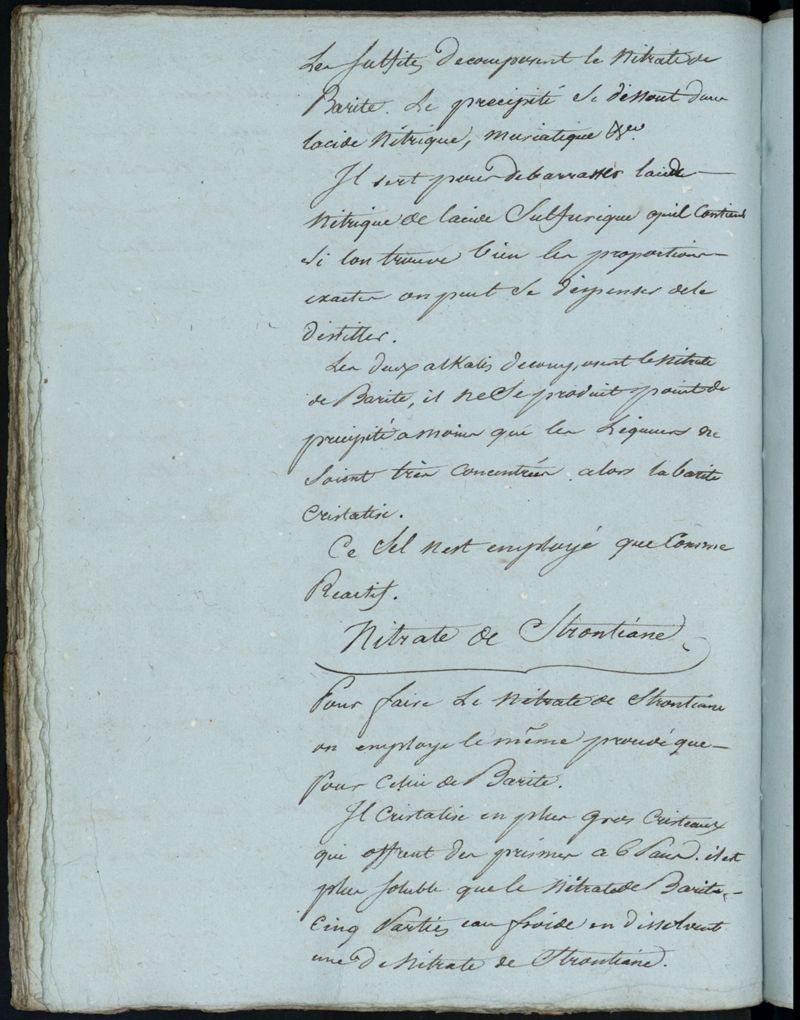 Les sulfites decomposent le Nitrate de
Barite. Le precipité se dissout dans
lacide Nitrique, muriatique &c.
Il sert pour debarrasser lacide
Nitrique de lacide Sulfurique quil Contient
Si lon trouve bien les proportions
exactes on peut se dispenser de le
distiller.
Les deux alkalis decomposent le Nitrate
de Barite, il ne se produit point de
precipité a moins que les Liqueurs ne
soient très concentrées alors la barite
cristalise.
Ce Sel nest employé que Comme
Reactif.
Nitrate de Strontiane
Pour faire Le Nitrate de Strontiane
on employe le même procedé que
pour Celui de Barite.
Il Cristalise en plus gros Cristeaux
qui offrent des prismes a 6 Pans. il est
plus soluble que le Nitrate de Barite,
Cinq Parties eau froide en dissolvent
une De Nitrate de Strontiane.